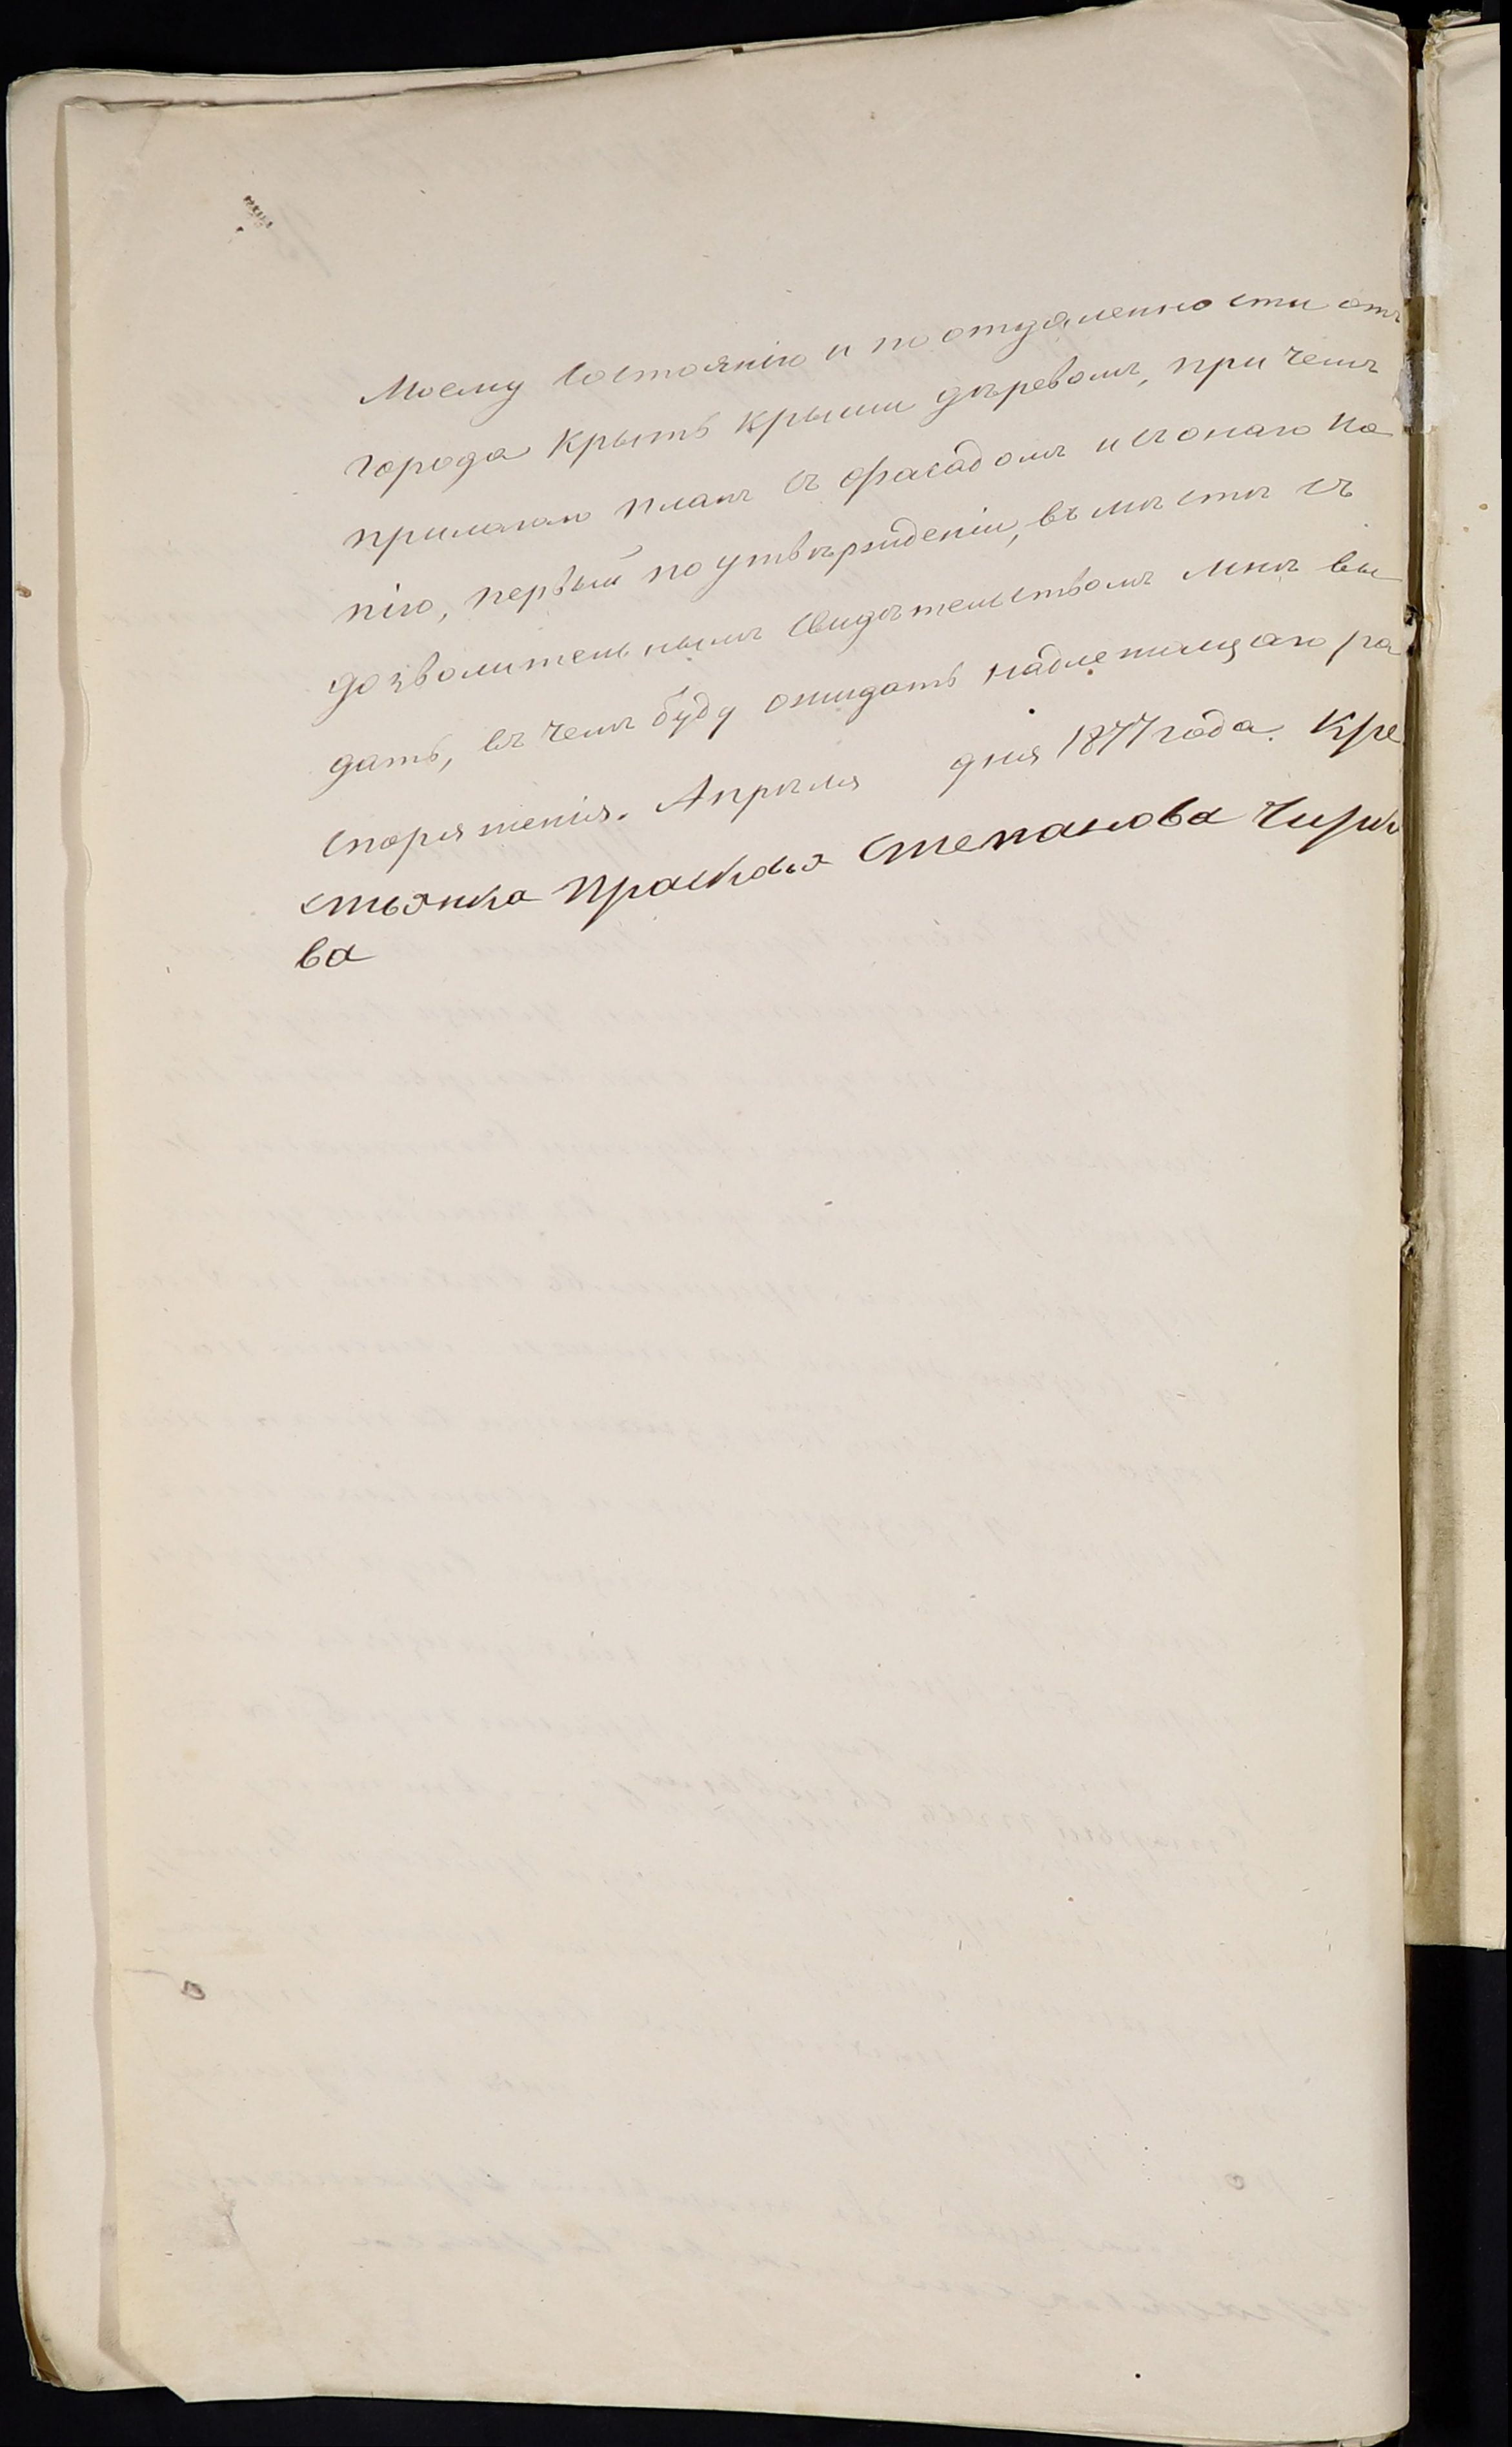 моему состоянію и по отдаленности отъ
города крыть крыши деревомъ, при чемъ
прилагаю планъ съ фасадомъ и съ онаго ко
пію, первый по утвержденіи, вместѣ съ
дозволительнымъ свидѣтельствомъ мнѣ вы
дать, въ чемъ буду ожидать надлежащаго ра
споряженія. Апрѣля дня 1877 года. Кре
стьянка Прасковья Степанова
ва